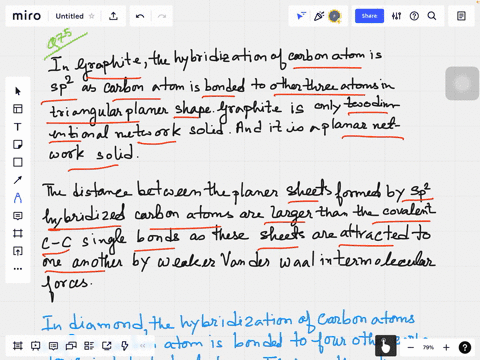 miro
Untitled
Share
Q75
In Graphite, the hybridization of carbon atom is
sp2 as carbon atom is bonded to other three atoms in
triangular planer shape. Graphite is only twodim
entional network solid. And it is a planar net-
work solid.
The distance between the planer sheets formed by sp2
hybridized carbon atoms are larger than the covalent
C-C single bonds as these sheets are attracted to
one another by weaker Vander waal intermolecular
forces.
In diamond, the hybridization of carbon atoms
atom is bonded to four other
79%